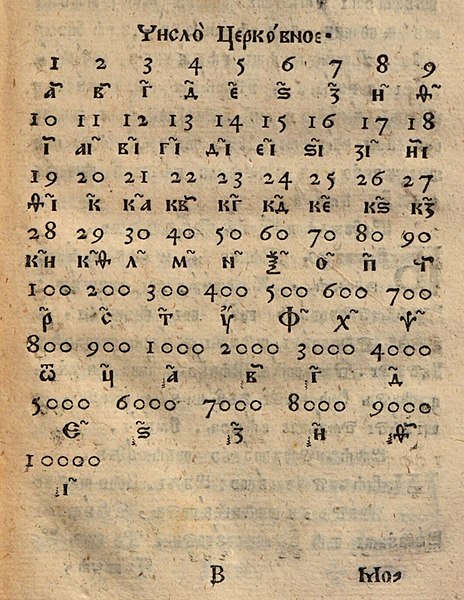 Число̀ Церко́вное·
1 2 3 4 5 6 7 8 9
а҃ в҃ г҃ д҃ е҃ ѕ҃ з҃ и҃ ѳ҃
10 11 12 13 14 15 16 17 18
і҃ аі҃ ві҃ гі҃ ді҃ еі҃ ѕі҃ зі҃ иі҃
19 20 21 22 23 24 25 26 27
ѳі҃ к҃ к҃а к҃в к҃г к҃д к҃е к҃ѕ к҃з
28 29 30 40 50 60 70 80 90
к҃и к҃ѳ л҃ м҃ н҃ ѯ҃ о҃ п҃ ч҃
100 200 300 400 500 600 700
р҃ с҃ т҃ у҃ ф҃ х҃ ѱ҃
800 900 1000 2000 3000 4000
ѿ ц҃ ҂а҃ ҂в҃ ҂г҃ ҂д҃
5000 6000 7000 8000 9000
҂е҃ ҂ѕ҃ ҂з҃ ҂и҃ ҂ѳ҃
10000
҂і҃
В